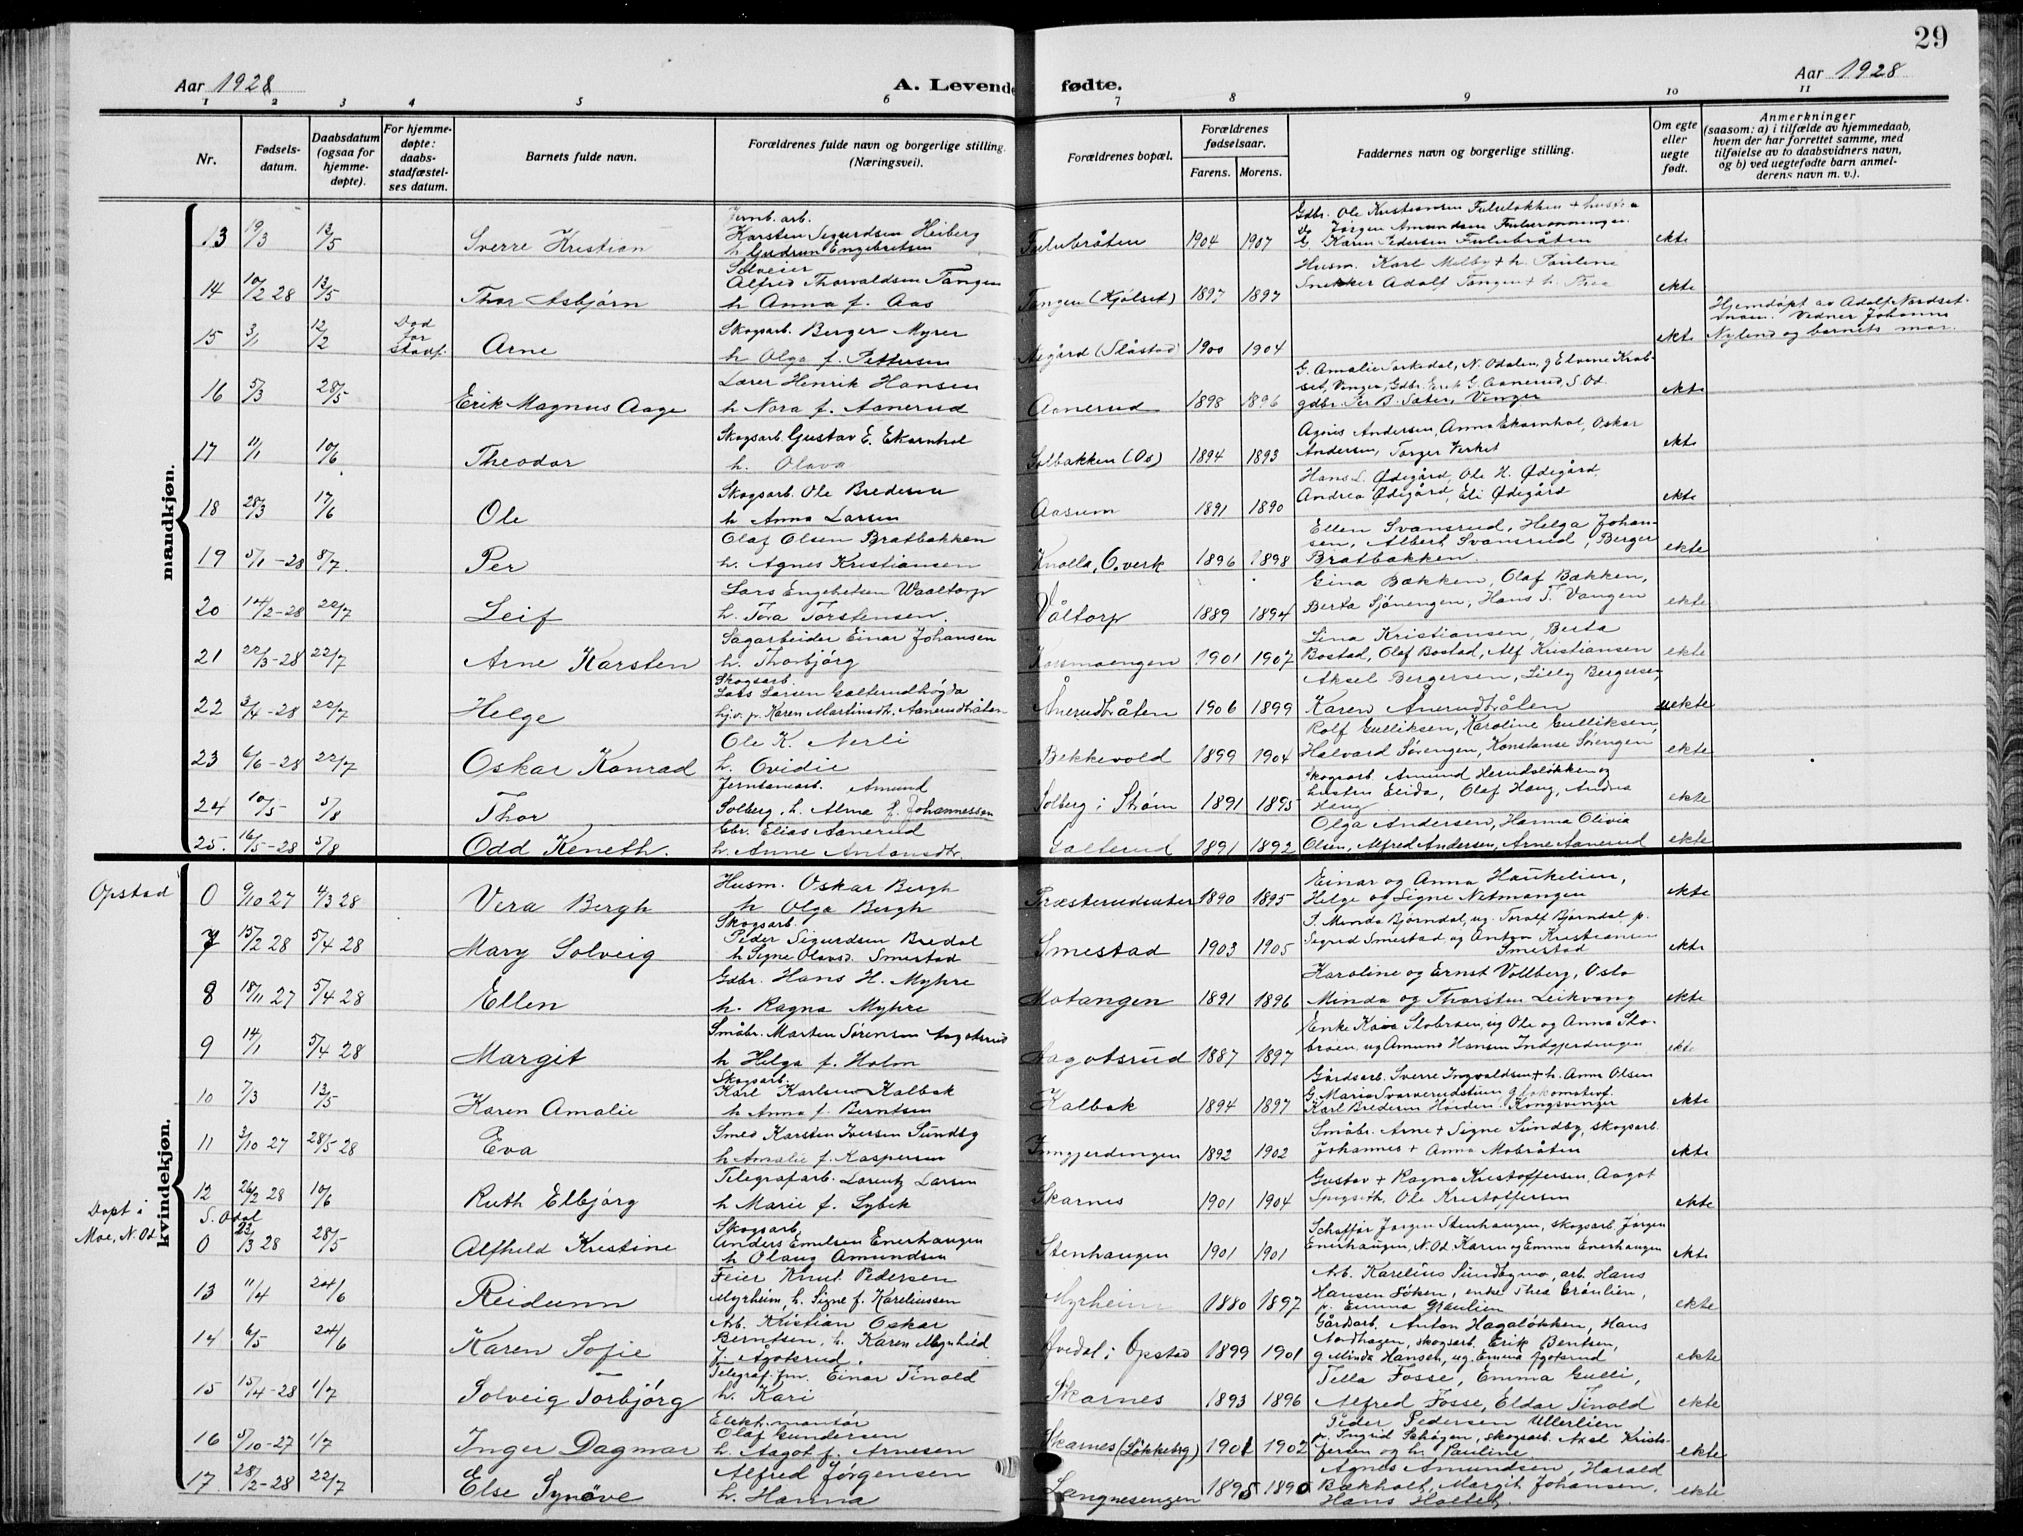 29
Aar 1928 A. Levende fødte. Aar 1928
1 2 3 4 5 6 7 8 9 10 11
Nr. Fødselsdatum. Daabsdatum (ogsaa for hjemmedøpte). For hjemmedøpte: daabsstadfæstelses datum. Barnets fulde navn. Forældrenes fulde navn og borgerlige stilling. (Næringsvei). Forældrenes bopæl. Forældrenes fødselsaar. Farens. Morens. Faddernes navn og borgerlige stilling. Om egte eller uegte født. Anmerkninger (saasom: a) i tilfælde av hjemmedaab, hvem der har forrettet samme, med tilføielse av to daabsvidners navn, og b) ved uegtefødte barn anmelderens navn m. v.).
mandkjøn.
Jernb. arb.
13 19/3 13/5 Sverre Kristian Karsten Sigurdsen Heiberg
h. Gudrun Engebretsen Fulubråten 1904 1907 G. Karen Pedersen Fulubråten ekte
14 10/2 28 13/5 Thor Asbjørn Alfred Thorvaldsen Tangen
h. Anna f. Aas Tangen (Kjølset) 1897 1897 Husm. Karl Melby + h. Pauline
Snekker Adolf Tangen + h. Thea ekte
15 3/1 12/2 Død før stadf. Arne Skogsarb. Berger Myrer
h Olga f. Pettersen Aegård (Slåstad) 1900 1904 ekte Hjemdøpt av Adolf Nordset-
moen. Vidner Johanna
Nylend og barnets mor.
16 5/3 28/5 Erik Magnus Aage Lærer Henrik Hansen
h Nora f. Aanerud Aanerud 1898 1896 G. Amalie Sarkedal, N. Odalen, g Elvine Krok-
set, Vinger, Gdbr. Erik G. Aanerud, S. Od.
gdbr. Per B. Sæter, Vinger ekte
17 11/1 10/6 Theodor Skogsarb. Gustav E. Ekornhol
h. Olava Solbakken (Os) 1894 1893 Agnes Andersen, Anna Ekornhol, Oskar
Andersen, Torger Verket ekte
18 28/3 17/6 Ole Skogsarb. Ole Bredesen
h. Anna Larsen Aasum 1891 1890 Hans L. Ødegård, Ole H. Ødegård,
Andrea Ødegård, Eli Ødegård ekte
19 5/1-28 8/7. Per Olaf Olsen Bratbakken
h. Agnes Kristiansen Knolla, O.verk 1896 1898 Ellen Svansrud, Helga Johan-
sen, Albert Svansrud, Berger
Bratbakken. ekte
20 14/2-28 22/7 Leif Lars Engebretsen Waaltorp
h. Tora Torstensen. Våltorp 1889 1894 Gina Bækken, Olaf Bækken,
Berta Sjønengen, Hans T. Vangen ekte
21 22/3-28 22/7 Arne Karsten Sagarbeider Einar Johansen
h. Thorbjørg Korsmoengen 1901 1907 Lina Kristiansen, Berta
Bostad, Olaf Bostad, Alf Kristiansen ekte
22 3/4-28 22/7 Helge Skogsarb.
Lars Larsen Galterudhøgda
hj.v.p. Karen Martinsdtr. Aanerudbråten Ånerudbråten 1906 1899 Aksel Bergersen, Lilly Bergersen,
Karen Anerudbråten uekte
23 6/6-28 22/7 Oskar Konrad Ole K. Nerli
h. Ovidie Bekkevold 1899 1904 Rolf Gulliksen, Karoline Gulliksen,
Halvard Sørengen, Konstanse Sørengen ekte
24 10/5 5/8 Thor Amund
Solberg, h. Alma f. Johannesson Solberg i Strøm 1891 1895 Skogsarb Amund Herudsløkken og
hustru Elida, Olaf Haug, Andrea
Haug ekte
25. 16/5-28 5/8 Odd Keneth. Gbr. Elias Aanerud
h. Anne Antonsdtr. Galterud 1891 1892 Olga Andersen, Hanna Olivia
Olsen, Alfred Andersen, Arne Aanerud ekte
kvindekjøn.
Opstad 0 9/10 27 4/3 28 Vera Bergh Husm. Oskar Bergh
h Olga Bergh Præsterudsæter 1890 1895 Einar og Anna Haukelien,
Helge og Signe Netmangen ekte
7 15/2 28 5/4 28 Mary Solveig Skogsarb.
Peder Sigurdsen Bredal
h Signe Olavsd. Smestad Smestad 1903 1905 T. Minda Bjørndal, ug. Toralf Bjørndal p.
Sigrid Smestad ug Anton Kristiansen
Smestad ekte
8 18/11 27 5/4 28 Ellen Gdbr. Hans H. Myhre
h. Ragna Myhre Motangen 1891 1896 Karoline og Ernst Vollberg, Oslo
Minda og Thorsten Leikvang ekte
9 14/1 5/4 28 Margit Småbr. Marten Sørensen Aagotsrud
h Helga f. Holm Aagotsrud 1887 1897 ekte
10 7/3 13/5 Karen Amalie Skogsarb.
Karl Karlsen Kalbak
h Anna f. Berntsen Kalbak 1894 1897 Gårdsarb. Sverre Ingvaldsen + h. Anna Olsen
Kongsvinger ekte
11 3/10 27 28/5 28 Eva Smed Karsten Iversen Sundby
h Amalie f. Kaspersen Inngjerdingen 1892 1902 Småbr. Arne + Signe Sundby, skogsarb.
Johannes + Anna Mobråten ekte
12 26/2 28 10/6 Ruth Elbjørg Telegrafarb. Lorentz Larsen
h Marie f. Lybek Skarnes 1901 1904 Gustav + Ragna Kristoffersen, Aagot
Spigseth, Ole Kristoffersen ekte
Døpt i
Moe, N. Od. S. Odal
0 23/3 28 28/5 Alfhild Kristine Skogsarb.
Anders Emilsen Enerhaugen
h Olaug Amundsen Stenhaugen 1901 1901 Schaffør Jørgen Stenhaugen, skogsarb. Jørgen
Enerhaugen, N. Od. Karen og Emma Enerhaugen ekte
13 11/4 24/6 Reidunn Feier Knut Pedersen
Myrheim, h. Signe f. Kareliussen Myrheim 1880 1897 Arb. Karelius Sundbymo, arb. Hans
Hansen Søken, enke Thea Gräulien,
p. Emma Graulien ekte
14 6/5 24/6 Karen Sofie Arb. Kristian Oskar
Berntsen, h. Karen Magnhild
f. Ågotsrud. Hvedal i Opstad 1899 1901 Gårdsarb. Anton Hagaløkken, Hans
Nordhagen, skogsarb. Erik Bentsen,
g Minda Hansen, ug. Emma Agotsrud ekte
15 15/4-28 1/7 Solveig Torbjørg Telegraf. fm. Einar Tinold
h. Kari Skarnes 1893 1896 Tella Fosse, Emma Gulli,
Alfred Fosse, Eldar Tinold ekte
16 5/10-27 1/7 Inger Dagmar Elekt. montør
Olaf Gundersen
h. Aagot f. Arnesen Skarnes (Løkkebg) 1901 1902 Peder Pedersen Ullerlien
p. Ingrid Schøgen, skogsarb. Axel Krist-
fersen og h. Pauline ekte
17. 28/2-28 22/7 Else Synøve Alfred Jørgensen
h. Hanna Længnesengen 1895 1890 Agnes Amundsen, Harald
Bækholt, Margit Johansen,
Hans Holtet. ekte